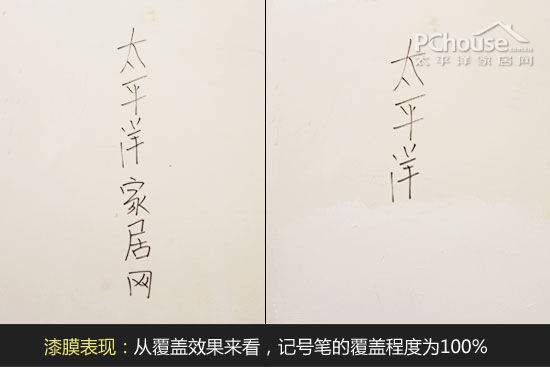 太平洋家居网
太平洋
PChouse
太平洋家居网
漆膜表现：从覆盖效果来看，记号笔的覆盖程度为100%